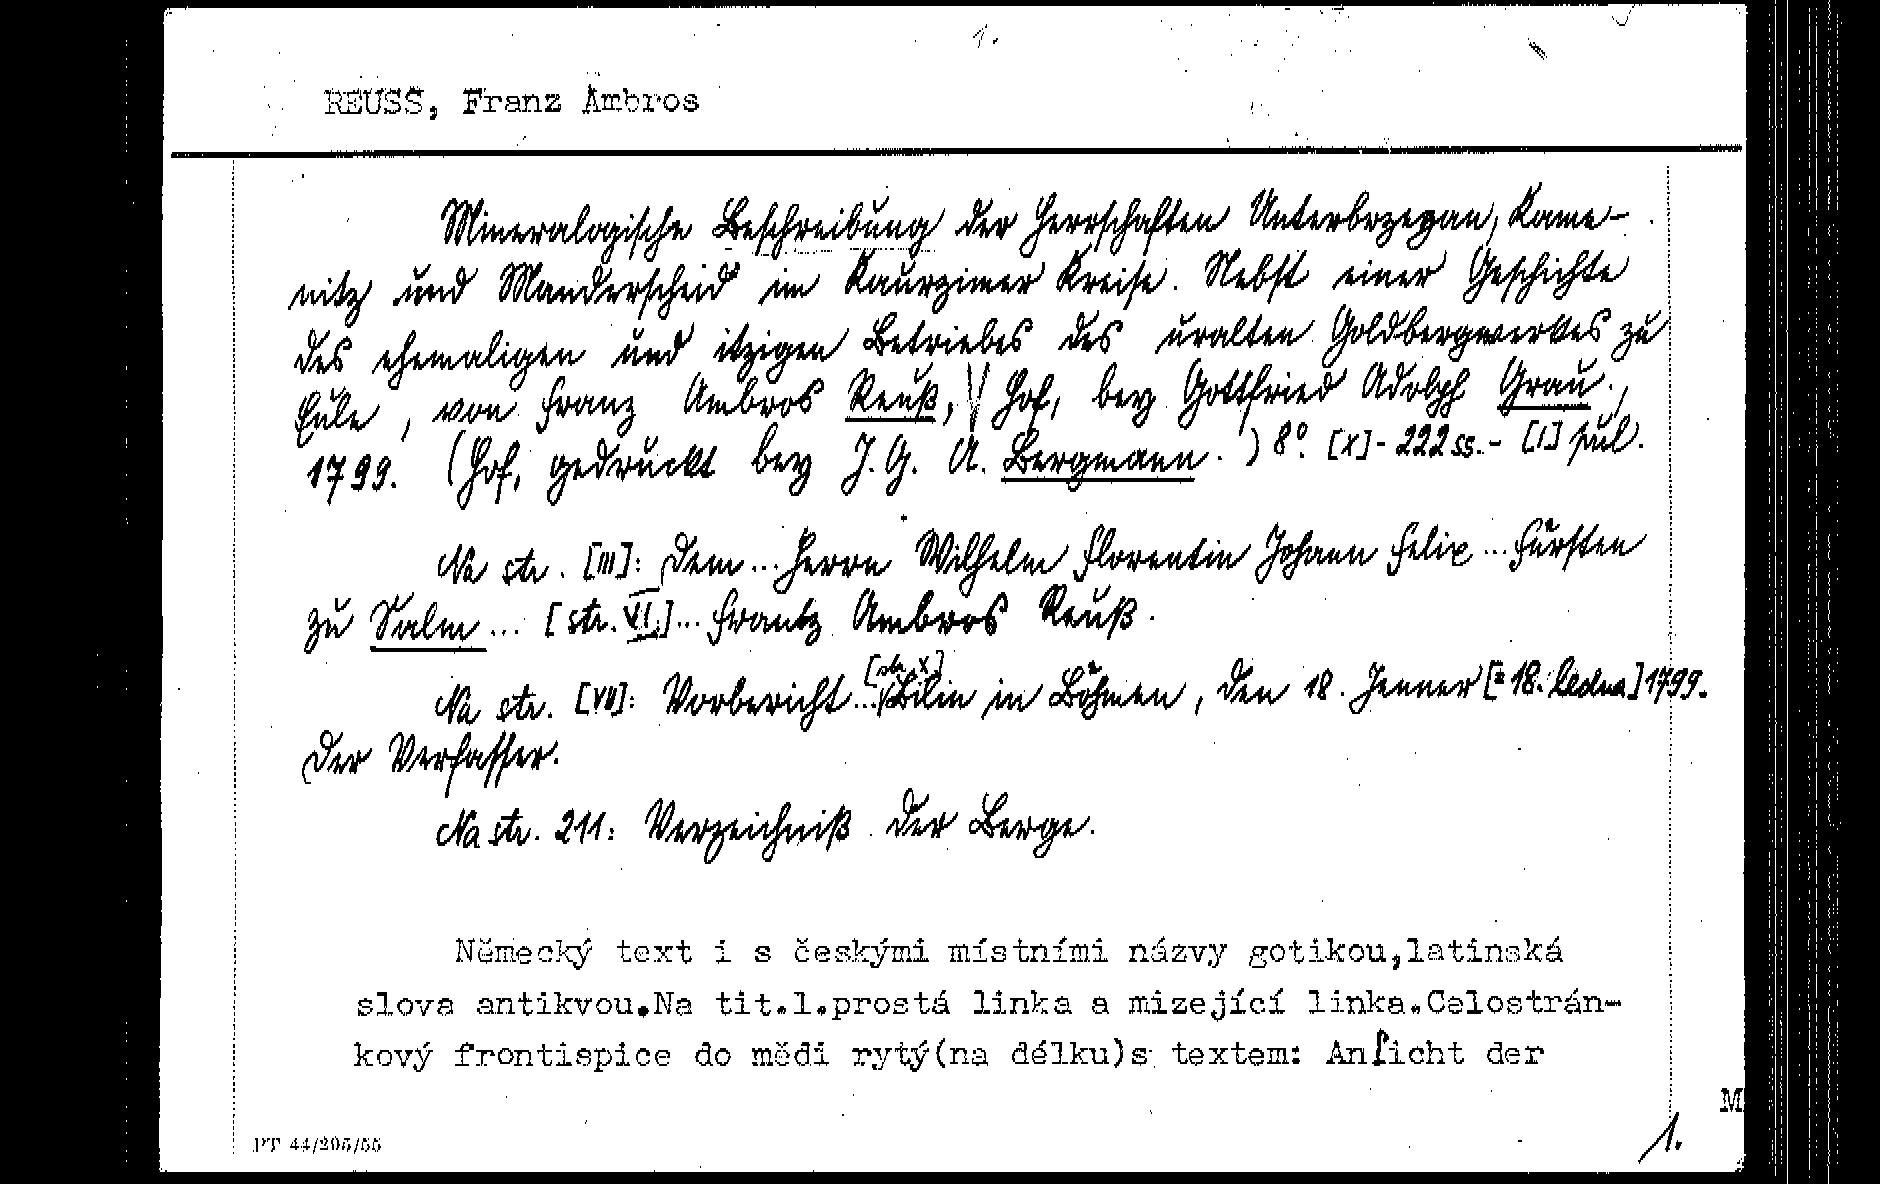 1.
REUSS, Franz Ambros
Mineralogische Beschreibung der Herrschaften Unterbrzezan, Kame-
nitz und Manderscheid im Kaurzimer Kreise. Nebst einer Geschichte
des ehemaligen und itzigen Betriebes des uralten Goldbergwerkes zu
Eule, von Franz Ambros Reuß, Hof, bey Gottfried Adolph Grau.,
1799. (Hof, gedruckt bey J. G. A. Bergmann.) 8° [X] - 222 ss. - [1] pul.
Na str. [III]: Dem ... Herrn Wilhelm Florentin Johann Felix ... Fürsten
zu Salm ... [str. VI.] ... Frantz Ambros Reuß.
Na str. [VII]: Vorbericht ... [str. X] Bilin in Böhmen, den 18. Jenner [= 18. ledna] 1799.
Der Verfasser.
Na str. 211: Verzeichniß der Berge.
Německý text i s českými místními názvy gotikou,latinská
slova antikvou.Na tit.l.prostá linka a mizející linka.Celostrán-
kový frontispice do mědi rytý(na délku)s textem: Anſicht der
M
PT 44/205/55
1.